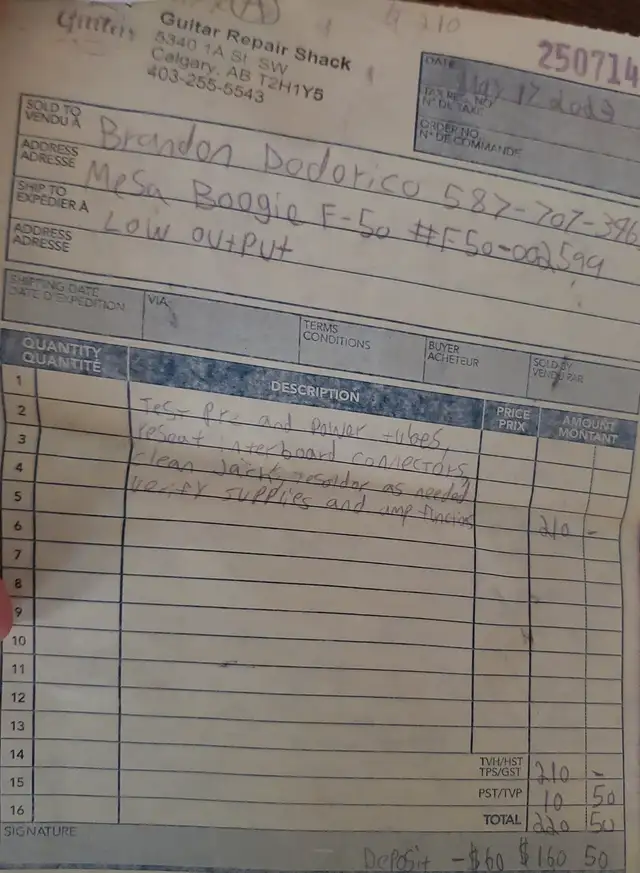 $ 210
Guitar Repair Shack
5340 1A St. SW
Calgary, AB T2H1Y5
403-255-5543
250714
DATE
TAX REG. NO.
N° DE TAXE
ORDER NO.
N° DE COMMANDE
SOLD TO
VENDU À
Brandon Dodorico 587-707-396
ADDRESS
ADRESSE
Mesa Boogie F-50 #F50-002599
SHIP TO
EXPÉDIER À
Low output
ADDRESS
ADRESSE
SHIPPING DATE
DATE D'EXPÉDITION
VIA
TERMS
CONDITIONS
BUYER
ACHETEUR
SOLD BY
VENDU PAR
QUANTITY
QUANTITÉ
DESCRIPTION
PRICE
PRIX
AMOUNT
MONTANT
1
2 Test pre and power tubes,
3 reseat interboard connectors,
4 clean jacks, resolder as needed
5 verify supplies and amp functions
6 210 -
7
8
9
10
11
12
13
14
TVH/HST
TPS/GST
210 -
15
PST/TVP 10 50
16
TOTAL 220 50
SIGNATURE
Deposit -$60 $160 50